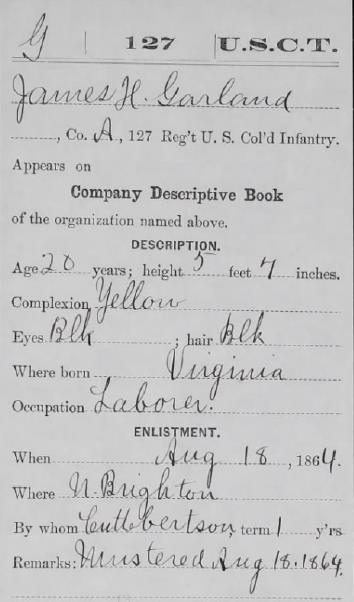 G | 127 | U.S.C.T.
James H. Garland
, Co. A, 127 Reg't U. S. Col'd Infantry.
Appears on
Company Descriptive Book
of the organization named above.
DESCRIPTION.
Age 20 years; height 5 feet 7 inches.
Complexion Yellow
Eyes Blk ; hair Blk
Where born Virginia
Occupation Laborer.
ENLISTMENT.
When Aug 18, 1864.
Where N. Brighton
By whom Cuthbertson, term 1 y'rs
Remarks: Mustered Aug 18. 1864.